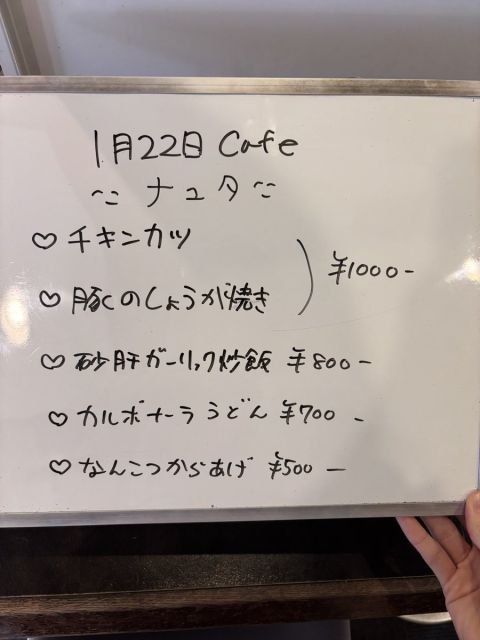 1月22日 Cafe
~ ナユタ ~
♡ チキンカツ
♡ 豚のしょうが焼き
¥1000-
♡ 砂肝ガーリック炒飯 ¥800-
♡ カルボナーラうどん ¥700-
♡ なんこつからあげ ¥500-